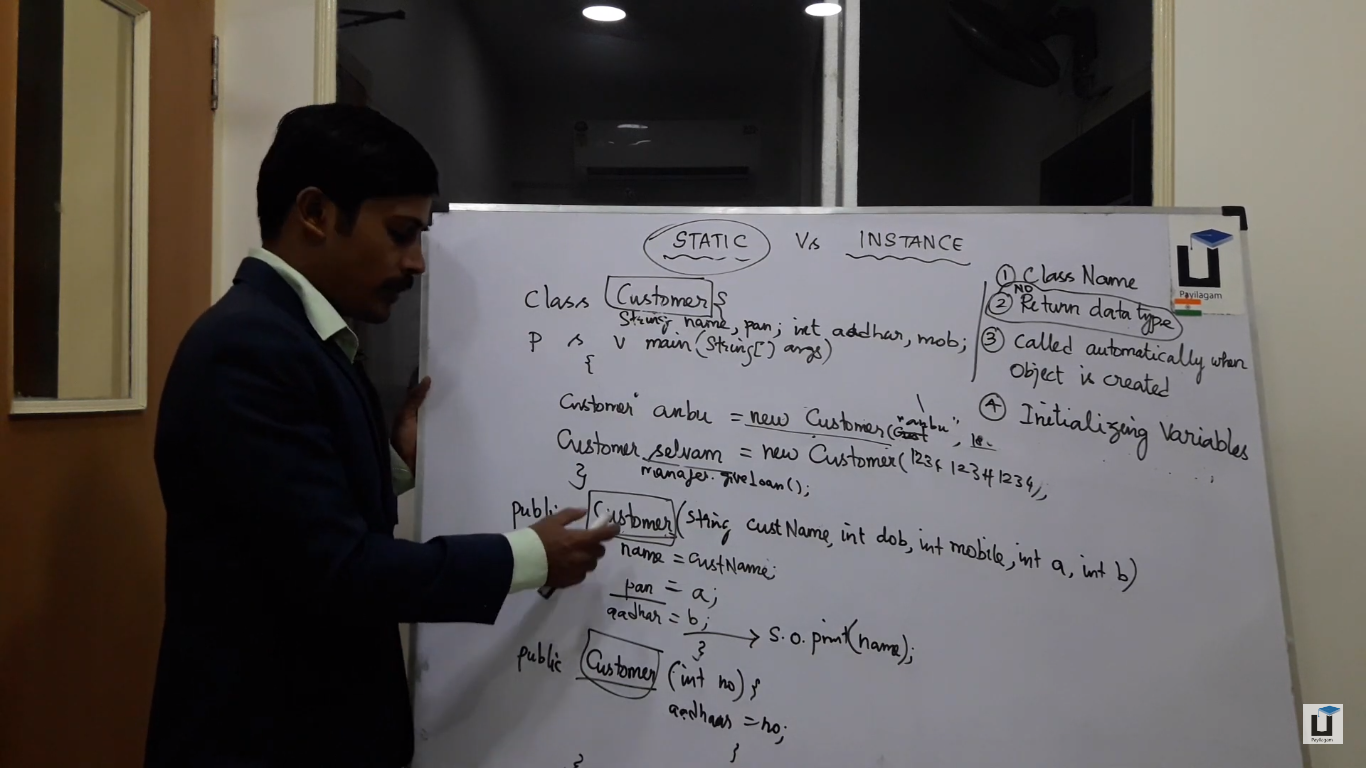 STATIC Vs INSTANCE
Class Customer {
String name, pan; int aadhar, mob;
P s v main(String[] args)
{
Customer anbu = new Customer("anbu",
Customer selvam = new Customer(
manager.giveloan();
}
public Customer (String custName, int dob, int mobile, int a, int b)
name = custName;
pan = a;
aadhar = b;
} → S.O.print(name);
public Customer (int no) {
aadhaar = no;
}
}
① Class Name
② NO Return data type
③ Called automatically when
Object is created
④ Initializing Variables
Payilagam
Payilagam